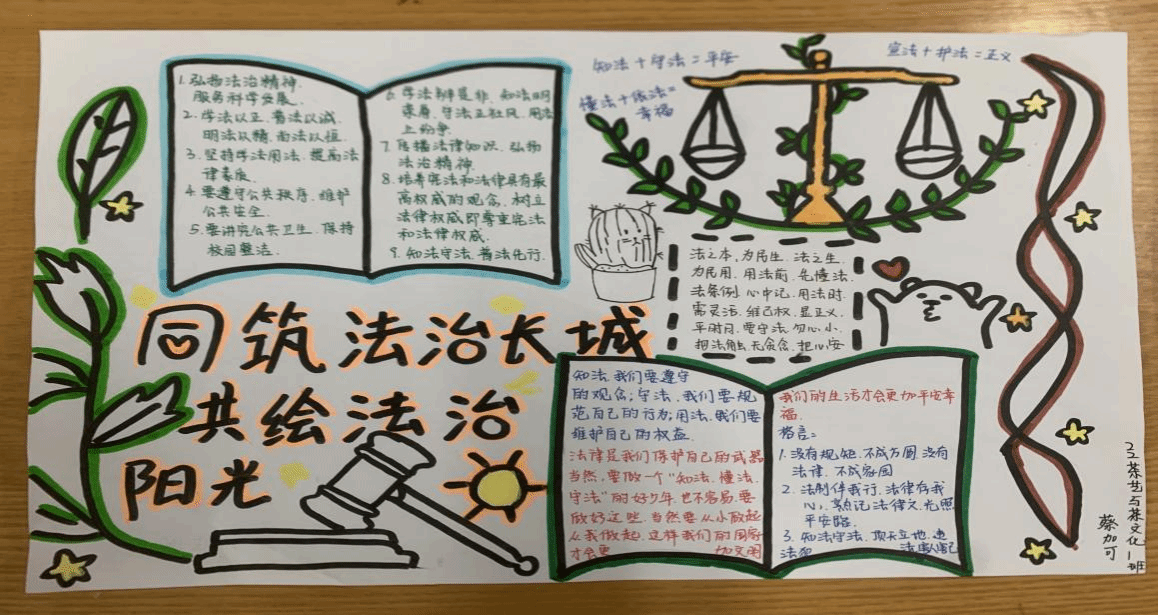 1. 弘扬法治精神.
服务科学发展.
2. 学法以正、普法以诚.
明法以精、尚法以恒.
3. 坚持学法用法、提高法
律素质.
4. 要遵守公共秩序、维护
公共安全.
5. 要讲究公共卫生、保持
校园整洁.
6. 学法辨是非、知法明
荣辱、守法正社风、用法
上纷争.
7. 传播法律知识、弘扬
法治精神.
8. 培养宪法和法律具有最
高权威的观念、树立
法律权威即尊重宪法
和法律权威.
9. 知法守法、普法先行.
知法+守法=平安
宣法+护法=正义
懂法+依法=
幸福
法之本,为民生.法之生.
为民用.用法前.先懂法.
法条例.心中记.用法时.
需灵活.维己权.显正义.
平时日.要守法.勿心小.
把法触.无贪念.把心安
同筑法治长城
共绘法治
阳光
知法,我们要遵守
的观念;守法,我们要规
范自己的行为;用法,我们要
维护自己的权益.
法律是我们保护自己的武器
当然,要做一个“知法、懂法、
守法”的好少年也不容易,要
做好这些,当然要从小做起
从我做起,这样我们的国家
才会更 加文明
我们的生活才会更加平安幸
福.
格言:
1. 没有规矩、不成方圆、没有
法律、不成家园
2. 法制伴我行、法律存我
心、熟记法律文、光照
平安路.
3. 知法守法、顶天立地、违
法犯法
茶艺与茶文化1班
蔡加可